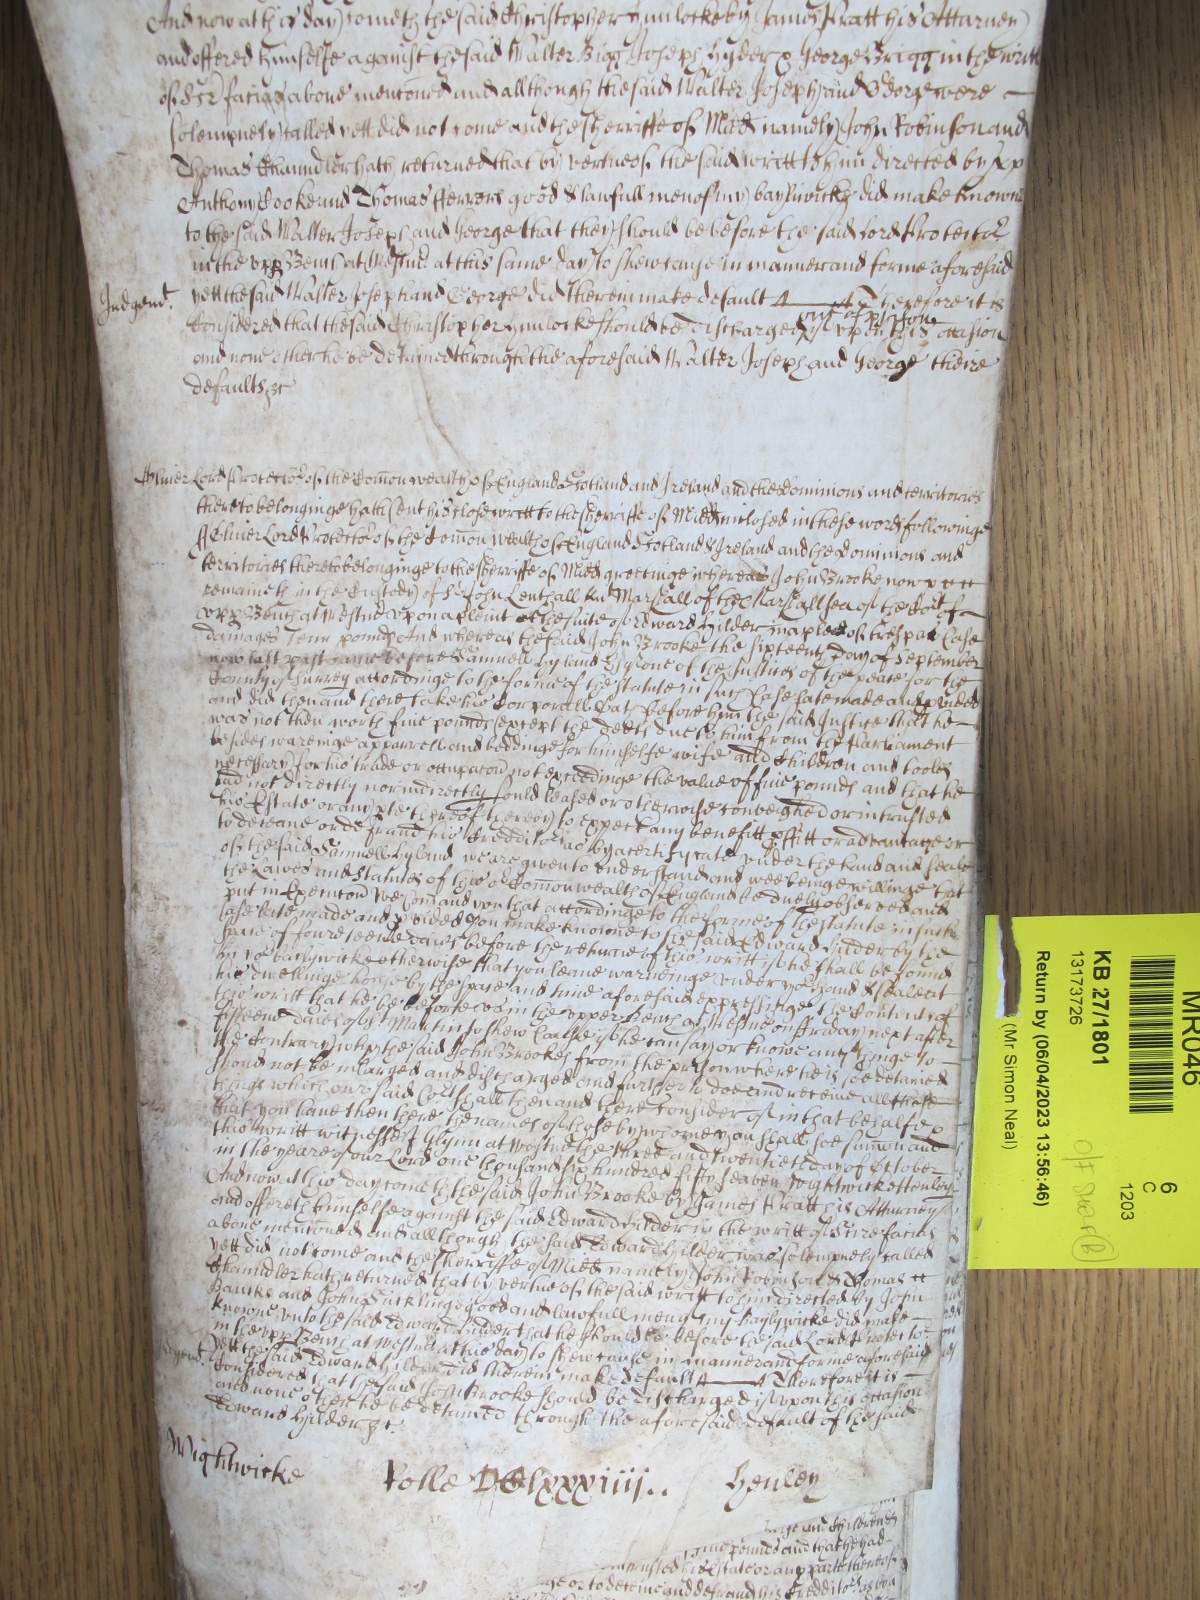 And now at this day cometh the said Christopher Hunlocke by James Pratt his Attorney
and offered himselfe against the said Walter Bigg Joseph Hyder & George Brigg in the writt
of Scr facias above mentioned and although the said Walter Joseph and George were
solempnely called yett did not come and the Sherriffe of Midd namely John Robinson and
Thomas Chaundler hath returned that by vertue of the said writt to him directed by
Anthony Cooke and Thomas fferrers good & lawfull men of my baylywicke did make knowne
to the said Walter Joseph and George that they should be before the said Lord Protector
in the upp Bench at Westmr at this same day to shew cause in manner and forme aforesaid
Judgemt. yett the said Walter Joseph and George did therein make default Therefore it is
Considered that the said Christopher Hunlocke should be discharged out of prison if upon this occasion
and none other he be detained through the aforesaid Walter Joseph and George theire
defaults &c
Oliver Lord Protector of the Comon wealth of England Scotland and Ireland and the dominions and territories
thereto belonginge hath sent his close writt to the Sherriffe of Midd inclosed in these words followinge
Oliver Lord Protector of the Comon wealth of England Scotland & Ireland and the Dominions and
territories thereto belonginge to the Sherriffe of Midd greetinge whereas John Brooke now
remaineth in the Custody of Sr John Lenthall Knt Marshall of the Marshallsea of the
upp Bench at Westmr upon a pleint at the suite of Edward Hilder in a plea of trespas Case
damages Tenn pounds And whereas the said John Brooke the sixteenth day of September
now last past came before Samuell Hyland Esq one of the Justices of the peace for the
County of Surrey accordinge to the forme of the statute in such Case late made and provided
and did then and there take his Corporall Oath before him the said Justice that he
was not then worth five pounds except the debts due to him from the Parliament
besides wareinge apparrell and beddinge for himselfe wife and Children and tooles
necessary for his trade or occupacon not exceedinge the value of five pounds and that he
had not directly nor indirectly sould leased or otherwise conveighed or intrusted
his Estate or any pte thereof thereby to expect any benefitt proffitt or advantage or
to deceave or defraud his Creditors as by a certifycate under the hand and seale
of the said Samuell Hyland we are given to understand and wee beinge willinge that
the Lawes and Statutes of this Comonwealth of England be duely observed and
put in Execucon We Comand you that accordinge to the forme of the statute in such
case late made and pvided you make knowne to the said Edward Hilder by the
space of fourteene daies before the returne of this writt if he shall be found
in yor baylywicke otherwise that you leave warneinge under yor hand & seale at
his dwellinge house by the space and time aforesaid expressinge the Content of
this writt that he be before us in the upper Bench at Westmr on Friday next after
fifteene daies of St Martin to shew Cause if he can say or knowe any thinge to
the Contrary why the said John Brooke from the prison where he is soe detained
should not be inlarged and discharged and further to doe and receive all those
things which our said Court shall then and there Consider of in that behalfe
that you have then there the names of those by whome you shall soe sumon and
this writt wittnes J Glynn at Westmr the three and twentieth day of October
in the yeare of our Lord one thousand six hundred fifty seaven Wightwicke Henley
And now at this day cometh the said John Brooke by James Pratt his Atturney
and offereth himselfe against the said Edward Hilder in the writt of Scire facias
above mentioned and although the said Edward Hilder was solempnely called
yett did not come and the Sherriffe of Midd namely John Robinson & Thomas
Chaundler hath returned that by vertue of the said writt to him directed by John
Bancks and John Sucklinge good and lawfull men of my baylywicke did make
knowne unto the said Edward Hilder that he should be before the said Lord Protector
in the upp Bench at Westmr at this day to shew cause in manner and forme aforesaid
yett the said Edward Hilder did therein make default Therefore it is
Considered that the said John Brooke should be discharged if upon this occasion
and none other he be detained through the aforesaid default of the said
Edward Hilder &c.
Wightwicke Rolle DClxxxiiii.. Henley
and Children
pounds and that he had
intrusted his Estate or any parte thereof
or to deceive and defraud his Creditors as by a
MR046
6
C
1203
KB 27/1801
13173726
Return by (06/04/2023 13:56:46)
(Mr Simon Neal)